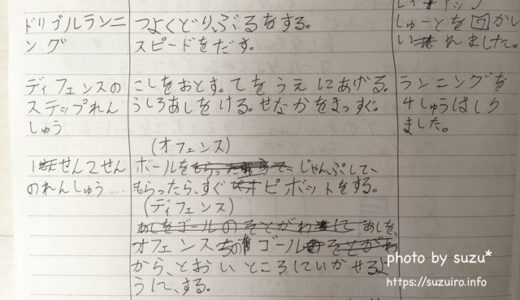 ドリブルランニ
ング
つよくどりぶるをする。
スピードをだす。
しゅーとを回かい
れました。
ディフェンスの
ステップれん
しゅう
こしをおとす。てをうえにあげる。
うしろあしをける。せなかをまっすぐ。
ランニングを
4しゅうはしり
ました。
(オフェンス)
せん2せん
のれんしゅう
ボールを じゃんぷして、
もらったら、すぐピボットをする。
(ディフェンス)
オフェンス ゴール
から、とおいところにいかせるよ
うに、する。
photo by suzu*
https://suzuiro.info